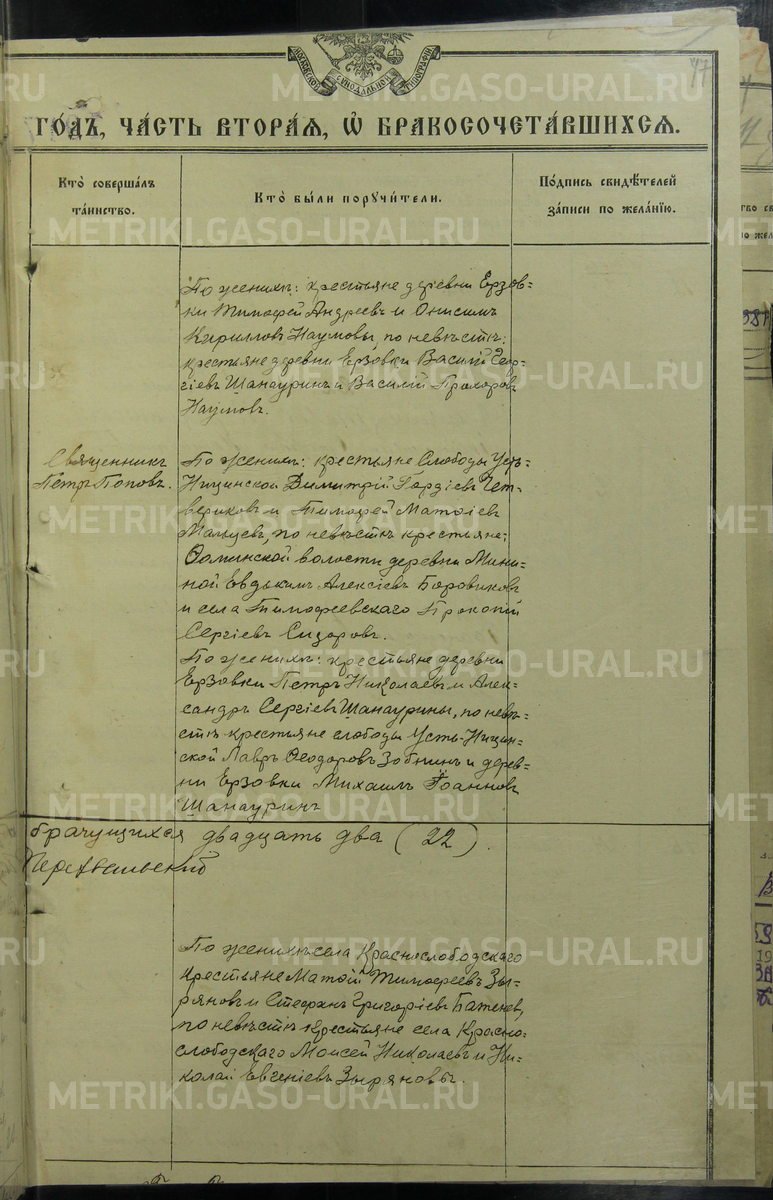 47
МОСКОВСКОЙ СѴНОДАЛЬНОЙ ТИПОГРАФІИ
ГО́ДЪ, ЧА́СТЬ ВТОРА́Я, Ѿ БРАКОСОЧЕТА́ВШИХСЯ.
Кто̀ соверша́лъ
та́инство.
Кто̀ бы́ли порꙋчи́тели.
По́дпись свидѣ́телей
за́писи по жела́нїю.
По женихѣ: крестьяне деревни Ерзов=
ки Тимофей Андреевъ и Онисим
Кирилловъ Наумовы, по невѣстѣ:
крестьяне деревни Ерзовки Василій Геор=
гіевъ Шанауринъ и Василій Прохоровъ
Наумовъ.
Священникъ
Петръ Поповъ.
По женихѣ: крестьяне Слободы Усть-
Ницинской Димитрій Гордіевъ Чет=
вериковъ и Тимофей Матѳіевъ
Мальцевъ, по невѣстѣ крестьяне:
Ѳоминской волости деревни Мини=
ной Евдокимъ Алексіевъ Боровиковъ
и села Тимофеевскаго Прокопій
Сергіевъ Сидоровъ.
По женихѣ: крестьяне деревни
Ерзовки Петръ Николаевъ и Алек=
сандръ Сергіевъ Шанаурины, по невѣ=
стѣ крестьяне слободы Усть-Ницин=
ской Лавръ Ѳеодоровъ Зобнинъ и дерев=
ни Ерзовки Михаилъ Іоанновъ
Шанауринъ
брачущихся двадцать два (22).
По женихѣ села Краснослободскаго
крестьяне Матѳій Тимофеевъ Зы=
ряновъ и Стефанъ Григоріевъ Баженов,
по невѣстѣ крестьяне села Красно=
слободскаго Моисей Николаевъ и Ни=
колай Евгеніевъ Зыряновы.
METRIKI.GASO-URAL.RU